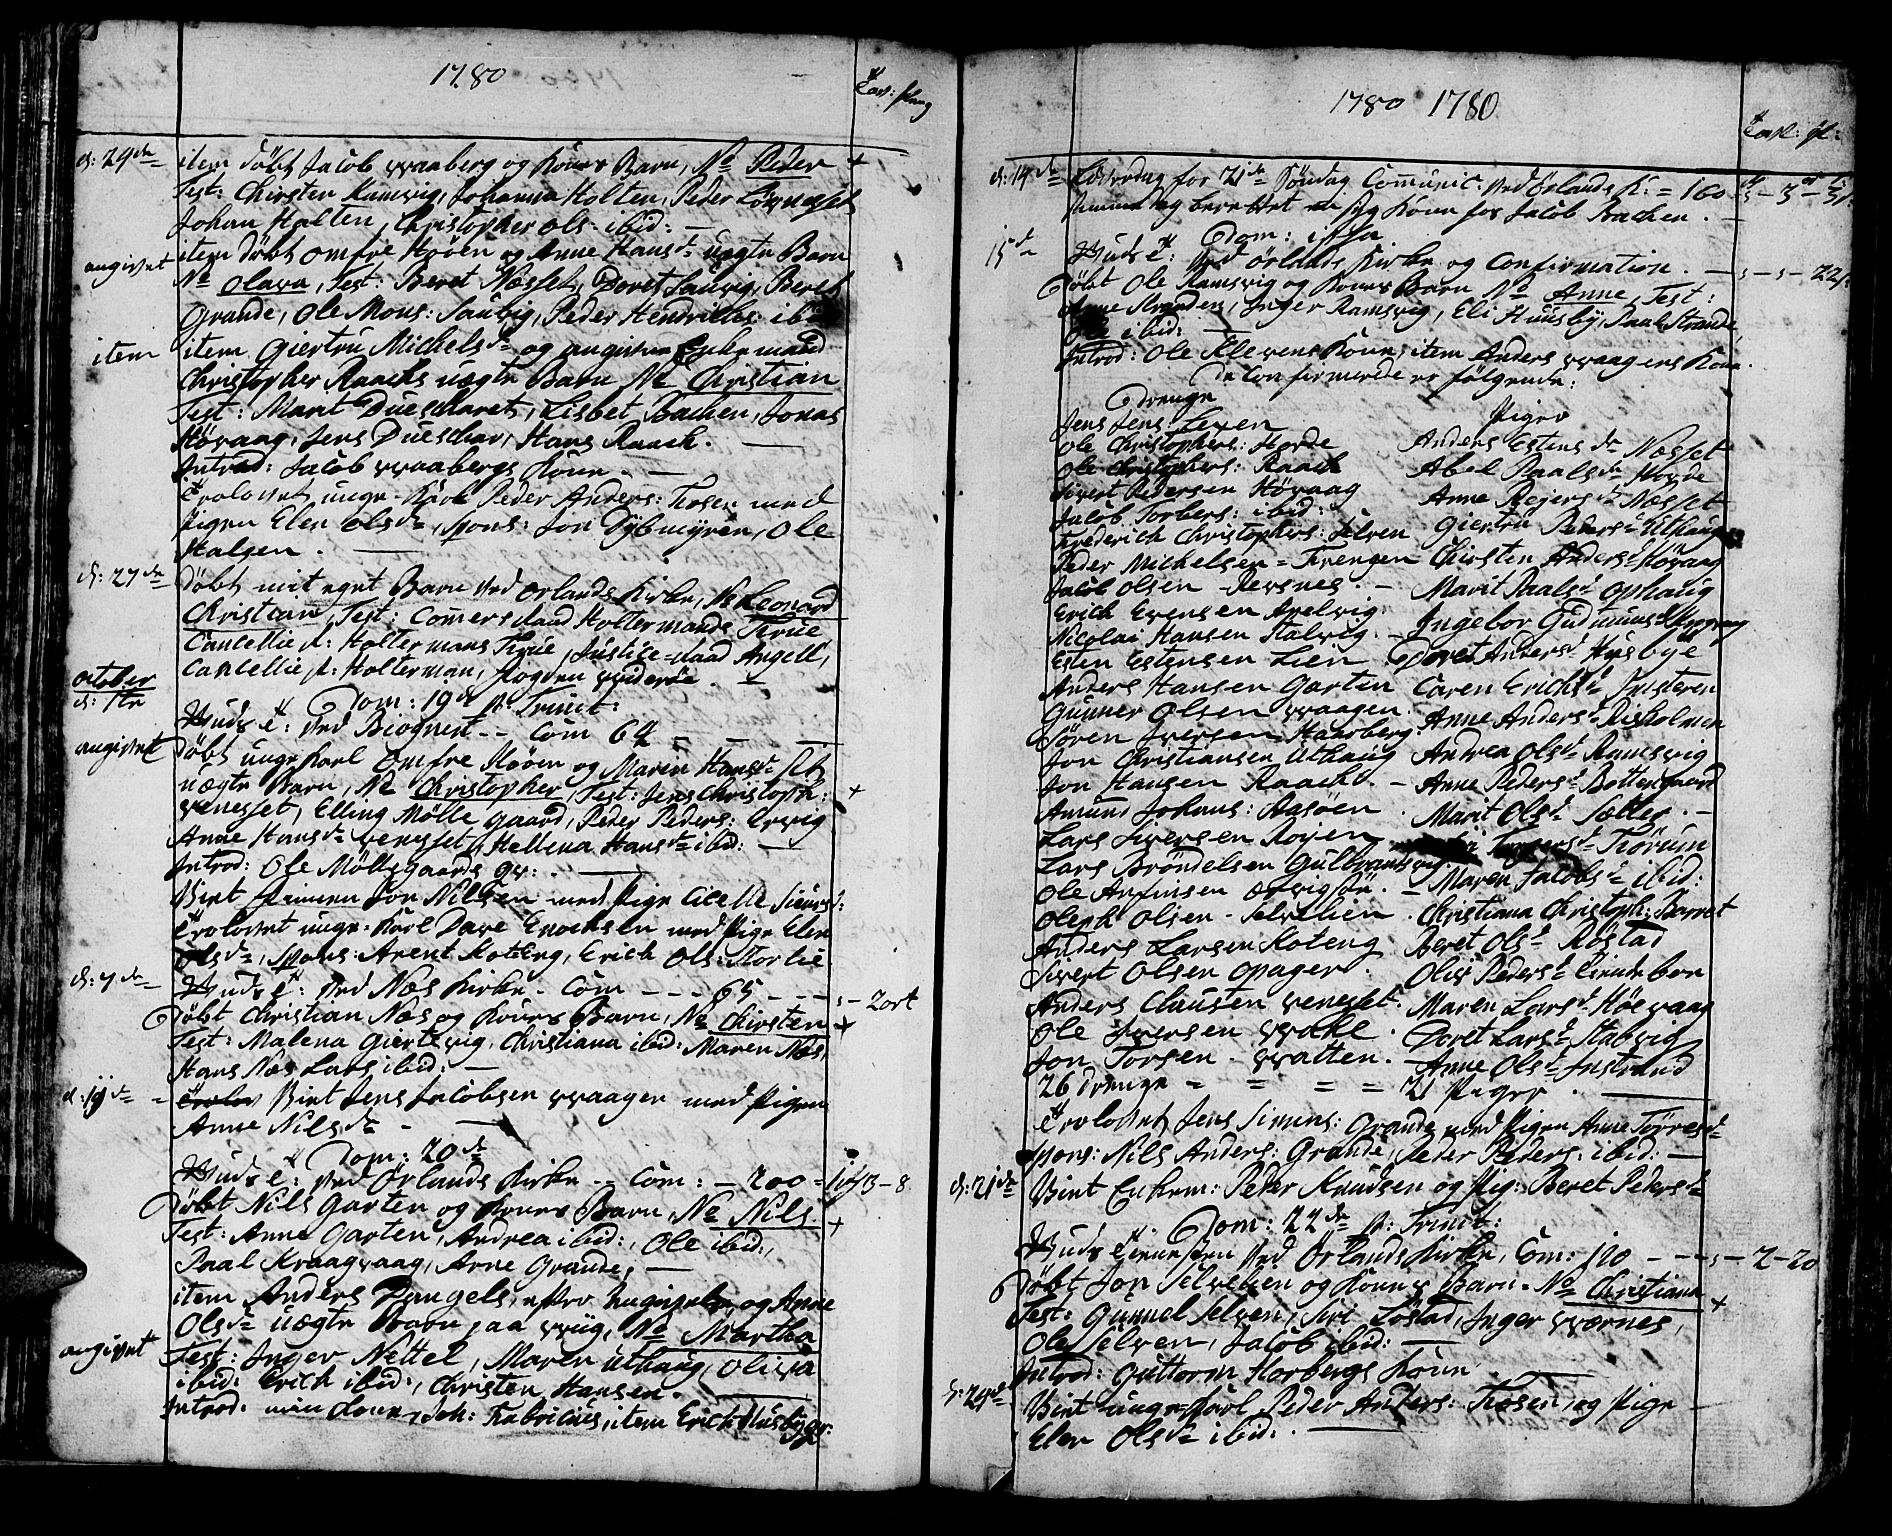 1780
d: 24de item döbt Jacob Waaberg og Kones Barn, Ne Peder +
Test: Chirsten Ramsvig, Johanna Holten, Peder
Johan Halten, Christopher Ols: ibid: —
angivet item döbt Omfre Höÿen og Anne Hansdr uægte Barn
Ne Olava, Test: Beret Næsset, Doret Sauvig, Beret
Grande, Ole Mons: Sautvig, Peder Hendrichs: ibid
item item Giertru Michelsdr og angiven Enkemand
Christopher Raachs uægte Barn Ne Christian
Test: Marit Dueskaret, Lisbet Bachen, Jonas
Hövaag, Jens Dueskar, Hans Raach. —
Introd: Jacob Waabergs Kone. —
Trolovet unge-Karl Peder Anders: Kosen med
Pigen Elen Olsdr, spons: Jon Dÿbmÿren, Ole
Halsen. —
d: 27de döbt mit eget Barn ved Örlands Kirke, Ne Leonard
Christian, Test: Comersraad Holtermands Frue
Cancellie r: Holtermans Frue, Justice-raad Angell,
Cancellie r: Holterman, fogden
October
d: 1te Dom: 19de p. Trinit:
Guds t: ved Biognest -- Com 64 — — —
angivet döbt unge Karl Omfre Höÿen og Maren Hansdr
uægte Barn, Ne Christopher, Test: Jens Christoph: +
venesset, Elling Mölle gaard, Peder Peders: Ervig
Anne Hansdr venesset, Hellena Hansdr ibid: —
Introd: Ole Möllegaards qv: . —
Viet Jon Nilsen med Pige Cicelle
Trolovet unge-Karl Dave Erichsen med Pige Elen
Olsdr, spons: Arent Koteng, Erich Ols: Storlie
d: 7de Guds t: ved Næs Kirke - Com - - - 65 - - - 2 ort
Döbt Christian Næs og Kones Barn, Ne Chirsten +
Test: Malena Giertsvig, Christiana ibid: Maren Næs,
Hans Næs Lars ibid: —
Viet Jens Jacobsen Waagen med Pigen
Anne Nilsdr - —
Dom: 20de
Guds t: ved Örlands Kirke -- Com: - 200 - 13-8
Döbt Nils Garten og Kones Barn, Ne Nils. +
Test: Anne Garten, Andrea ibid:, Ole ibid:,
Paal Kraagvaag, Arne Grande, —
item Anders efter og Anne
angivet Olsdr uægte Barn paa Ne Martha
Test: Inger Nettel, Maren Uthaug, Oliva
ibid: Erich ibid:, Christen Hansen. —
Introd: min Kone, Joh: Fabricius, item Erich Husbÿ qv:
1780 1780
d: 14de Löverdag for 21de Söndag Communic: ved Örlands K: = 160
samme dag berettet en syg Kone for Jacob Bachen. —
15de Dom: ipsa
Guds t: ved Örlands Kirke og Confirmation. - - - 22
Döbt Ole Ramsvig og Kones Barn Ne Anne, Test:
Anne Stranden, Inger Ramsvig, Eli Huusbÿ, Paal Strande
Ole ibid: —
Introd: Ole Klevens Kone, item Anders Waagens Kone.
De Confirmerede er fölgende:
Drenge
Piger
Jens Jens: Leren
Ole Christophers: Hovde
Ole Christophers: Raach
Sivert Pedersen Hövaag
Jacob Torbers: ibid:
Frederich Christophers: Selven
Peder Michelsen - Tirengen
Jacob Olsen - Revsnes. -
Erich Evensen
Nicolai Hansen Kalvig. -
Esten Estensen Lien
Anders Hansen Garten
Gunner Olsen Waagen.
Sören Iversen - Haarberg.
Jon Christiansen Uthaug
Jon Hansen Raach -
Amund Johans: Hasöen
Lars Siversen Röÿen
Lars Tröndelsen Gulbrantsvig
Ole Arfinsen
Oleph Olsen - Selvlien.
Anders Larsen Koteng
Sivert Olsen Opager.
Anders Clausen venesset.
Ole Iversen
Jon Torsen - Watten.
26 drenge = = = =
Anders Estensdr Næsset
Abel Paalsdr Hovde
Anne Rejersdr Næsset
Giertru Pedersdr Uthaug
Chirsten Andersdr Hövaag
Marit Paalsdr Ophaug
Ingebor Gudmunsdr
Doret Andersdr Husbÿe
Caren Erichsdr
Anne Andersdr Risholmen
Andrea Olsdr Ramsvig
Anne Pedersdr Bottengaard
Marit Olsdr Sætter. -
Maren Jacobsdr ibid:
Christiana Christoph: Borret
Beret Olsdr Röstad
Oliv Pedersdr
Maren Larsdr Höevaag
Doret Larsdr Stabvig
Anne Olsdr Instrand
21 Piger. —
Trolovet Jens Simens: Grande med Pigen Anne Törresdr
spons: Nils Anders: Grande, Peder Peders: ibid: —
d: 21de Viet Enkem: Peder Knudsen og Pig: Beret Pedersdr
Dom: 22de p: Trinit:
Guds tienesten ved Örlands Kirke, Com: 110 - - - 2-20
Döbt Jon Selvlien og Kones Barn - Ne Christiana +
Test: Gunnel Selven, Siri Löstad, Inger Værnes,
Ole Selven, Jacob ibid: —
Introd: Guttorm Horbergs Kone —
d: 24de Viet unge Karl Peder Anders: Kosen, og Pige —
Elen Olsdr ibid: . —